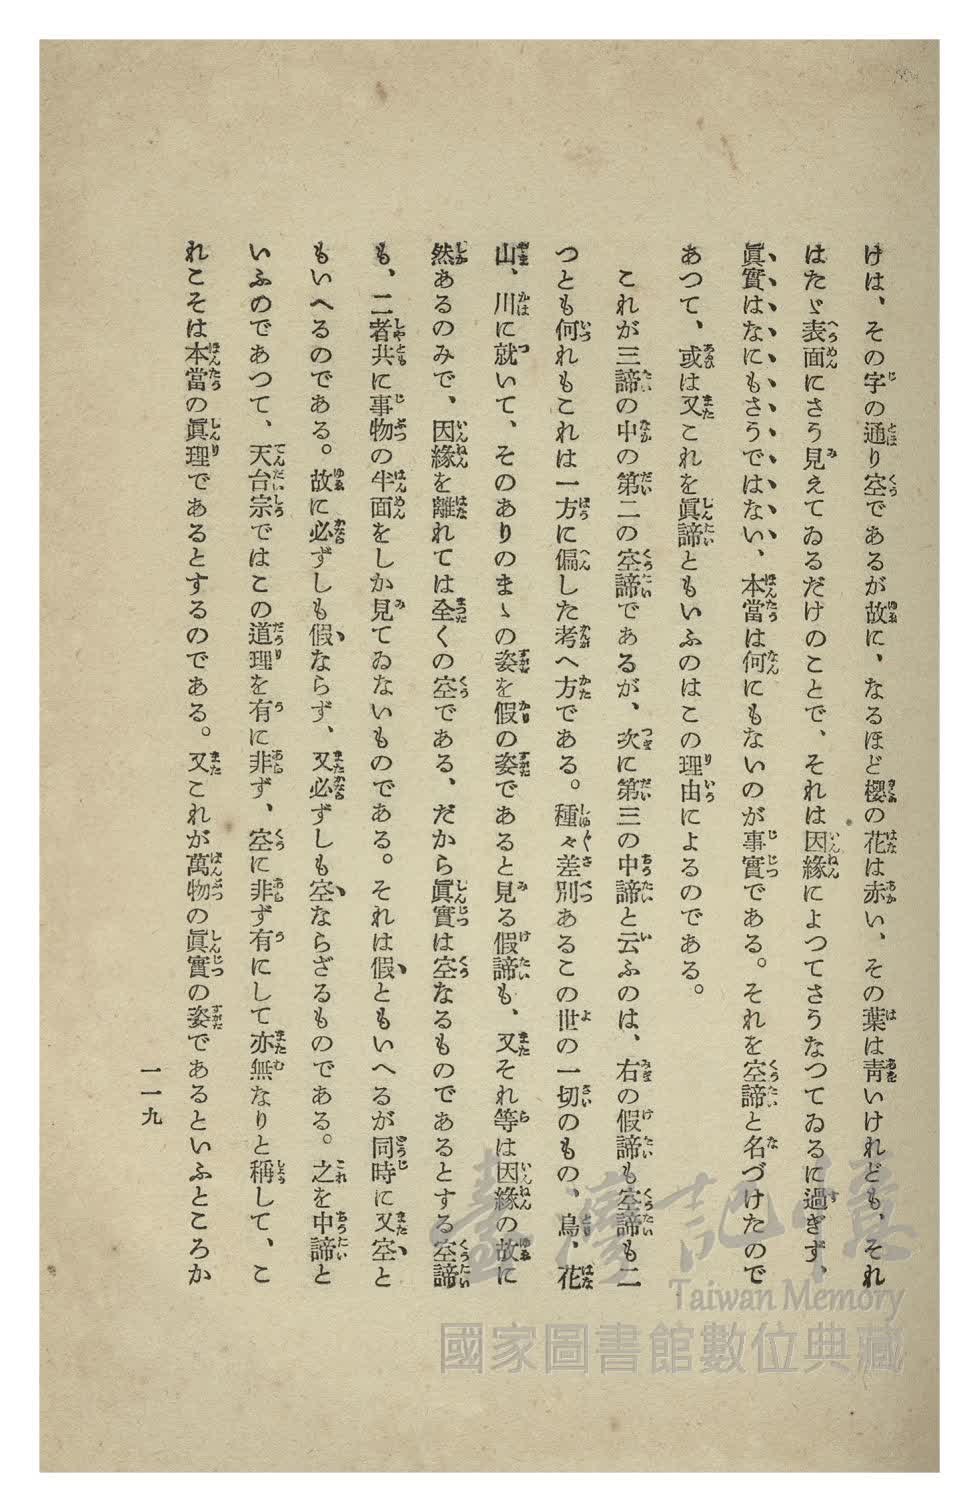 けは、その字の通り空であるが故に、なるほど櫻の花は赤い、その葉は靑いけれども、それ
はたゞ表面にさう見えてゐるだけのことで、それは因緣によつてさうなつてゐるに過ぎず、
眞實はなにもさうではない、本當は何にもないのが事實である。それを空諦と名づけたので
あつて、或は又これを眞諦ともいふのはこの理由によるのである。
これが三諦の中の第二の空諦であるが、次に第三の中諦と云ふのは、右の假諦も空諦も二
つとも何れもこれは一方に偏した考へ方である。種々差別あるこの世の一切のもの、鳥、花
山、川に就いて、そのありのまゝの姿を假の姿であると見る假諦も、又それ等は因緣の故に
然あるのみで、因緣を離れては全くの空である、だから眞實は空なるものであるとする空諦
も、二者共に事物の半面をしか見てゐないものである。それは假ともいへるが同時に又空と
もいへるのである。故に必ずしも假ならず、又必ずしも空ならざるものである。之を中諦と
いふのであつて、天台宗ではこの道理を有に非ず、空に非ず有にして亦無なりと稱して、こ
れこそは本當の眞理であるとするのである。又これが萬物の眞實の姿であるといふところか
一一九
臺灣記憶
Taiwan Memory
國家圖書館數位典藏